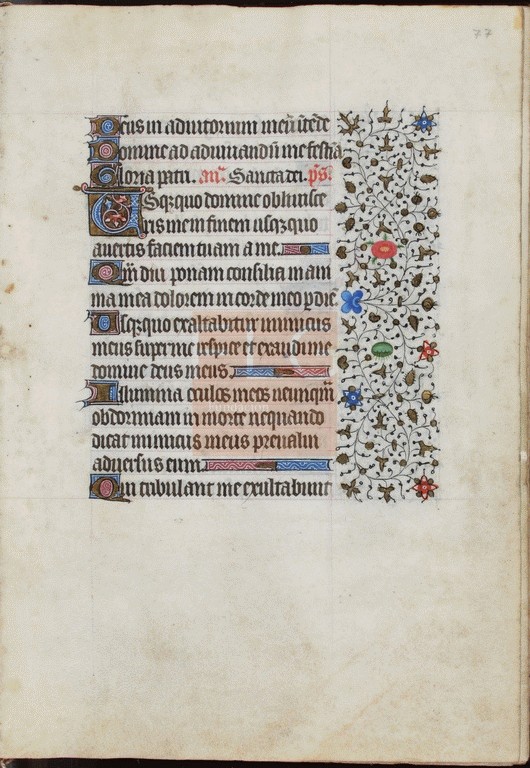 77
Deus in adiutorium meū ītēde
Domine ad adiuuandū me festīa
Gloria patri. an̄. Sancta dei. ps̄.
Usqzquo domine obliuisce
ris me in finem usqzquo
auertis faciem tuam a me.
Quā diu ponam consilia in ani
ma mea dolorem in corde meo p̄ diē
Usqzquo exaltabitur inimicus
meus super me respice et exaudi me
domine deus meus.
Illumina oculos meos ne unquā
obdormiam in morte ne quando
dicat inimicus meus preualui
aduersus eum
Qui tribulant me exultabunt